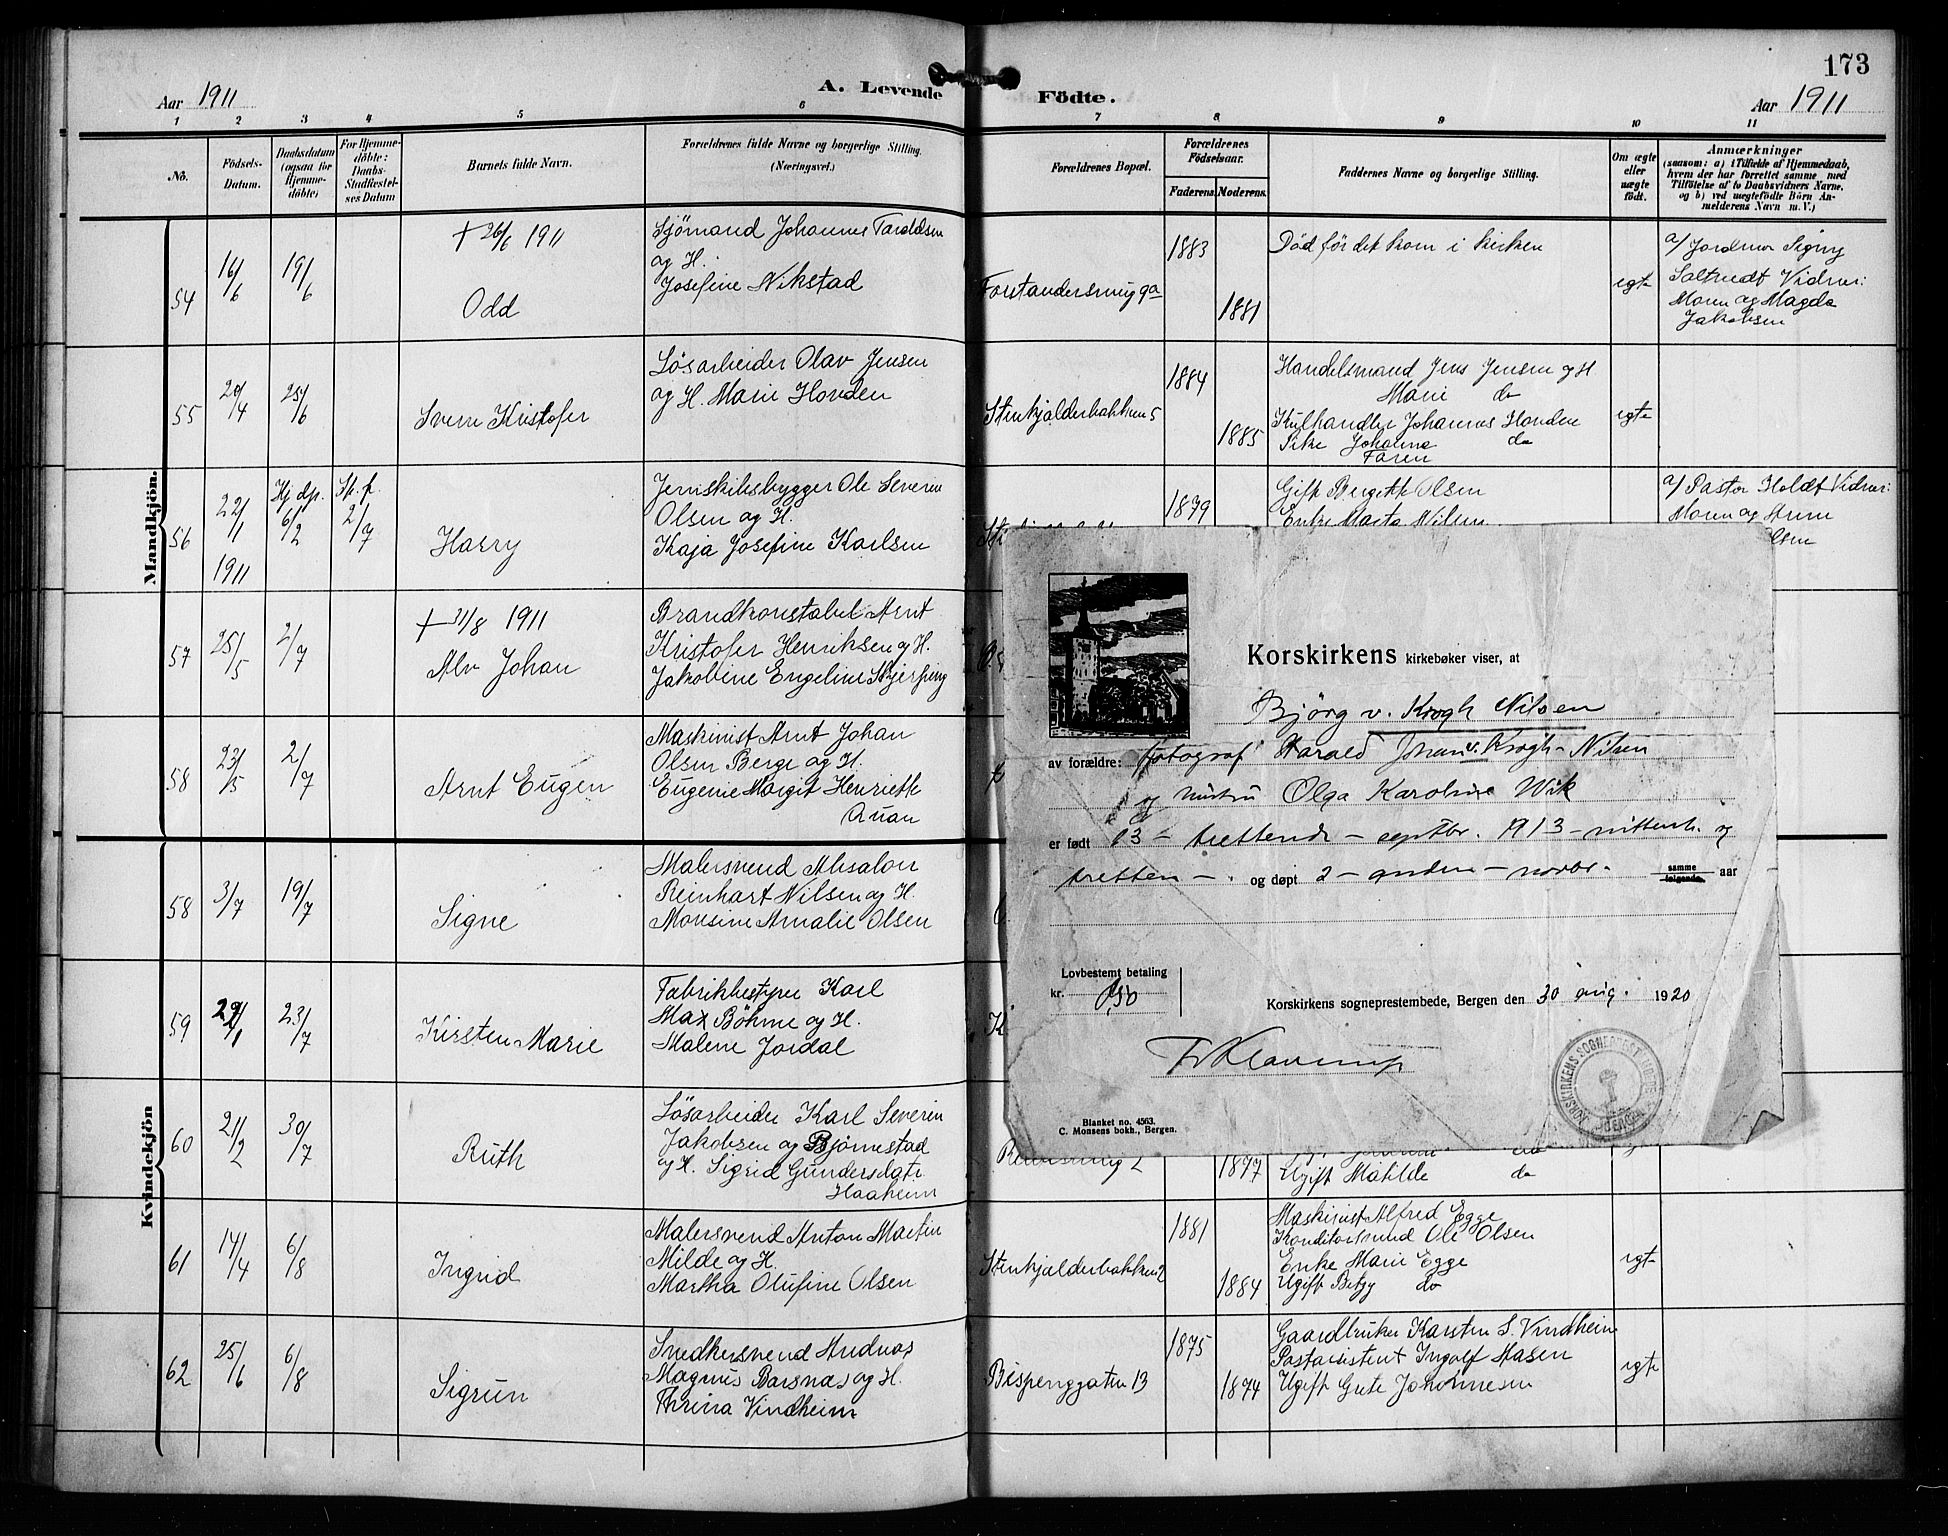 173
Aar 1911
A. Levende Födte.
Aar 1911
1 2 3 4 5 6 7 8 9 10 11
No.
Födsels-Datum.
Daabsdatum (ogsaa for Hjemmedöbte)
For Hjemmedöbte: Daabs-Stadfæstelses Datum
Barnets fulde Navn.
Forældrenes fulde Navne og borgerlige Stilling.
(Næringsvei.)
Forældrenes Bopæl.
Forældrenes Födselsaar.
Faderens. Moderens.
Faddernes Navne og borgerlige Stilling.
Om ægte eller uægte födt.
Anmærkninger
(saasom: a) i Tilfælde af Hjemmedaab,
hvem der har forrettet samme med
Tilföielse af to Daabsvidners Navne,
og b) ved uægtefödte Börn An-
melderens Navn m. V.)
Mandkjön.
54 16/6 19/6
+ 26/6 1911
Odd
Sjömand Johannes Taraldsen
og H.
Josefine Nikstad
Forstandersmug 9a
1883
1881
Död för det kom i kirken
egte
a/ Jordmor Signy
Saltvedt Vidner:
Moren og Magda
Jakobsen
55 20/4 25/6
Sverre Kristofer
Lösarbeider Olav Jensen
og H. Marie Hovden
Stenkjælderbakken 5
1884
1885
Handelsmand Jens Jensen og H.
Marie do
Kulhandler Johannes Hovden
Pike Johanna do
Faren
egte
56 22/1 1911
Hj. dp. 6/2
St. f. 2/7
Harry
Jernskibsbygger Ole Severin
Olsen og H.
Kaja Josefine Karlsen
1879
Gift Bergitte Olsen
Enke Marta Nilsen
a/ Pastor Holdt Vidner:
Moren og
57 25/5 2/7
+ 31/8 1911
Alv Johan
Brandkonstabel Arnt
Kristofer Henriksen og H.
Jakobine Engeline Skjerping
58 23/5 2/7
Arnt Eugen
Maskinist Arnt Johan
Olsen Berge og H.
Eugenie Margit Henriette
Kvindekjön
58 3/7 19/7
Signe
Malersvend Absalon
Reinhart Nilsen og H.
Monsine Amalie Olsen
59 23/7
Kirsten Marie
Fabrikbestyrer Karl
Max Böhme og H.
Malene Jordal
60 21/2 30/7
Ruth
Lösarbeider Karl Severin
Jakobsen og Björnestad
og H. Sigrid Gundersdatr
Haaheim
1877
Ugift Matilde do
61 14/4 6/8
Ingrid
Malersvend Anton Martin
Milde og H.
Martha Olufine Olsen
Stenkjælderbakken 2
1881
1884
Maskinist Alfred Egge
Konditorsvend Ole Olsen
Enke Marie Egge
Ugift Betzy do
egte
62 25/6 6/8
Sigrun
Snedkersvend Andreas
Magnus Barsnæs og H.
Thrina Vindheim
Bispenggaten 13
1875
1874
Gaardbruker Karsten S. Vindheim
Postassistent Ingolf Aasen
Ugift Grete Johannesen
egte
Korskirkens kirkebøker viser, at
Bjørg v. Krogh Nilsen
av forældre: fotograf Harald Johan v. Krogh-Nilsen
og hustru Olga Karoline Wik
er født 13 - trettende - septbr. 1913 - nittenh. og
tretten - . og døpt 2 - anden - novbr. samme følgende aar
Lovbestemt betaling
kr. 0,50
Korskirkens sogneprestembede, Bergen den 30 aug. 1920
KORSKIRKENS SOGNEPRESTEMBEDE BERGEN
Blanket no. 4563.
C. Monsens bokh., Bergen.